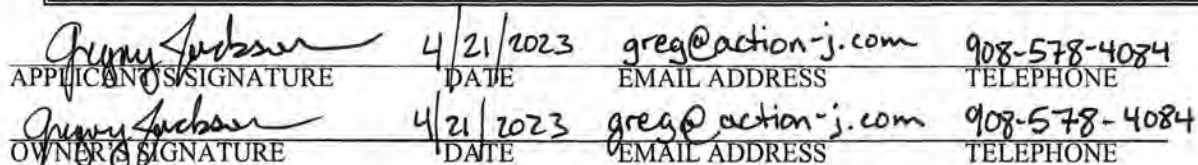 Gregory Jackson 4/21/2023 greg@action-j.com 908-578-4084
APPLICANT'S SIGNATURE DATE EMAIL ADDRESS TELEPHONE
Gregory Jackson 4/21/2023 greg@action-j.com 908-578-4084
OWNER'S SIGNATURE DATE EMAIL ADDRESS TELEPHONE